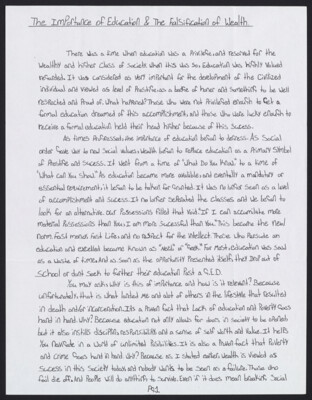 The Importance of Education & The Falsification of Wealth
There was a time when education was a privilege, and reserved for the
wealthy and higher class of society. When this was so, education was highly valued
rewarded. It was considered as very important for the development of the civilized
individual and viewed as level of prestige, as a badge of honor and something to be well
respected and proud of. What happened? Those who were not privileged enough to get a
formal education dreamed of this accomplishment, and those who were lucky enough to
receive a formal education held their head higher because of this success.
As times progressed, the importance of education began to decrease. As social
order gave way to new social values, wealth began to replace education as a primary symbol
of prestige and success. It went from a time of "What do you know," to a time of
"What can you show." As education became more available, and eventually a mandatory or
essential requirement, it began to be taken for granted. It was no longer seen as a level
of accomplishment and success. It no longer separated the classes and we began to
look for an alternative. Our possessions filled that void. "If I can accumulate more
material possessions than you, I am more successful than you." This became the new
norm. Fast money, fast life, and no respect for the intellect. Those who pursued an
education and excelled became known as "nerds" or "geeks." For most, education was seen
as a waste of time, and as soon as the opportunity presented itself, they drop out of
school or don't seek to further their education past a G.E.D.
You may ask, why is this of importance and how is it relevant? Because
unfortunately, that is what landed me and a lot of others in the lifestyle that resulted
in death and/or incarceration. It's a proven fact that lack of education and poverty goes
hand in hand. Why? Because education not only allows for doors in society to be opened
but it also instills discipline, responsibility and a sense of self worth and value. It helps
you navigate in a world of unlimited possibilities. It is also a proven fact that poverty
and crime goes hand in hand. Why? Because as I stated earlier, wealth is viewed as
success in this society today, and nobody wants to be seen as a failure. Those who
fail die off, and people will do anything to survive. Even if it does mean breaking social
Pg.1